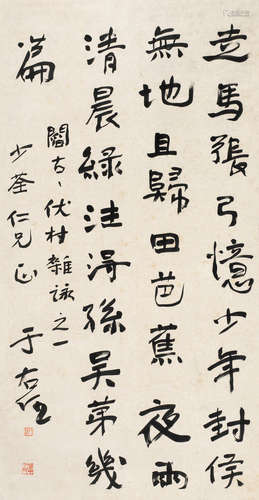 走馬張弓憶少年封侯
無地且歸田芭蕉夜雨
清晨綠注得孫吳第幾
篇
村雜詠之一
少荃仁兄正
于右任